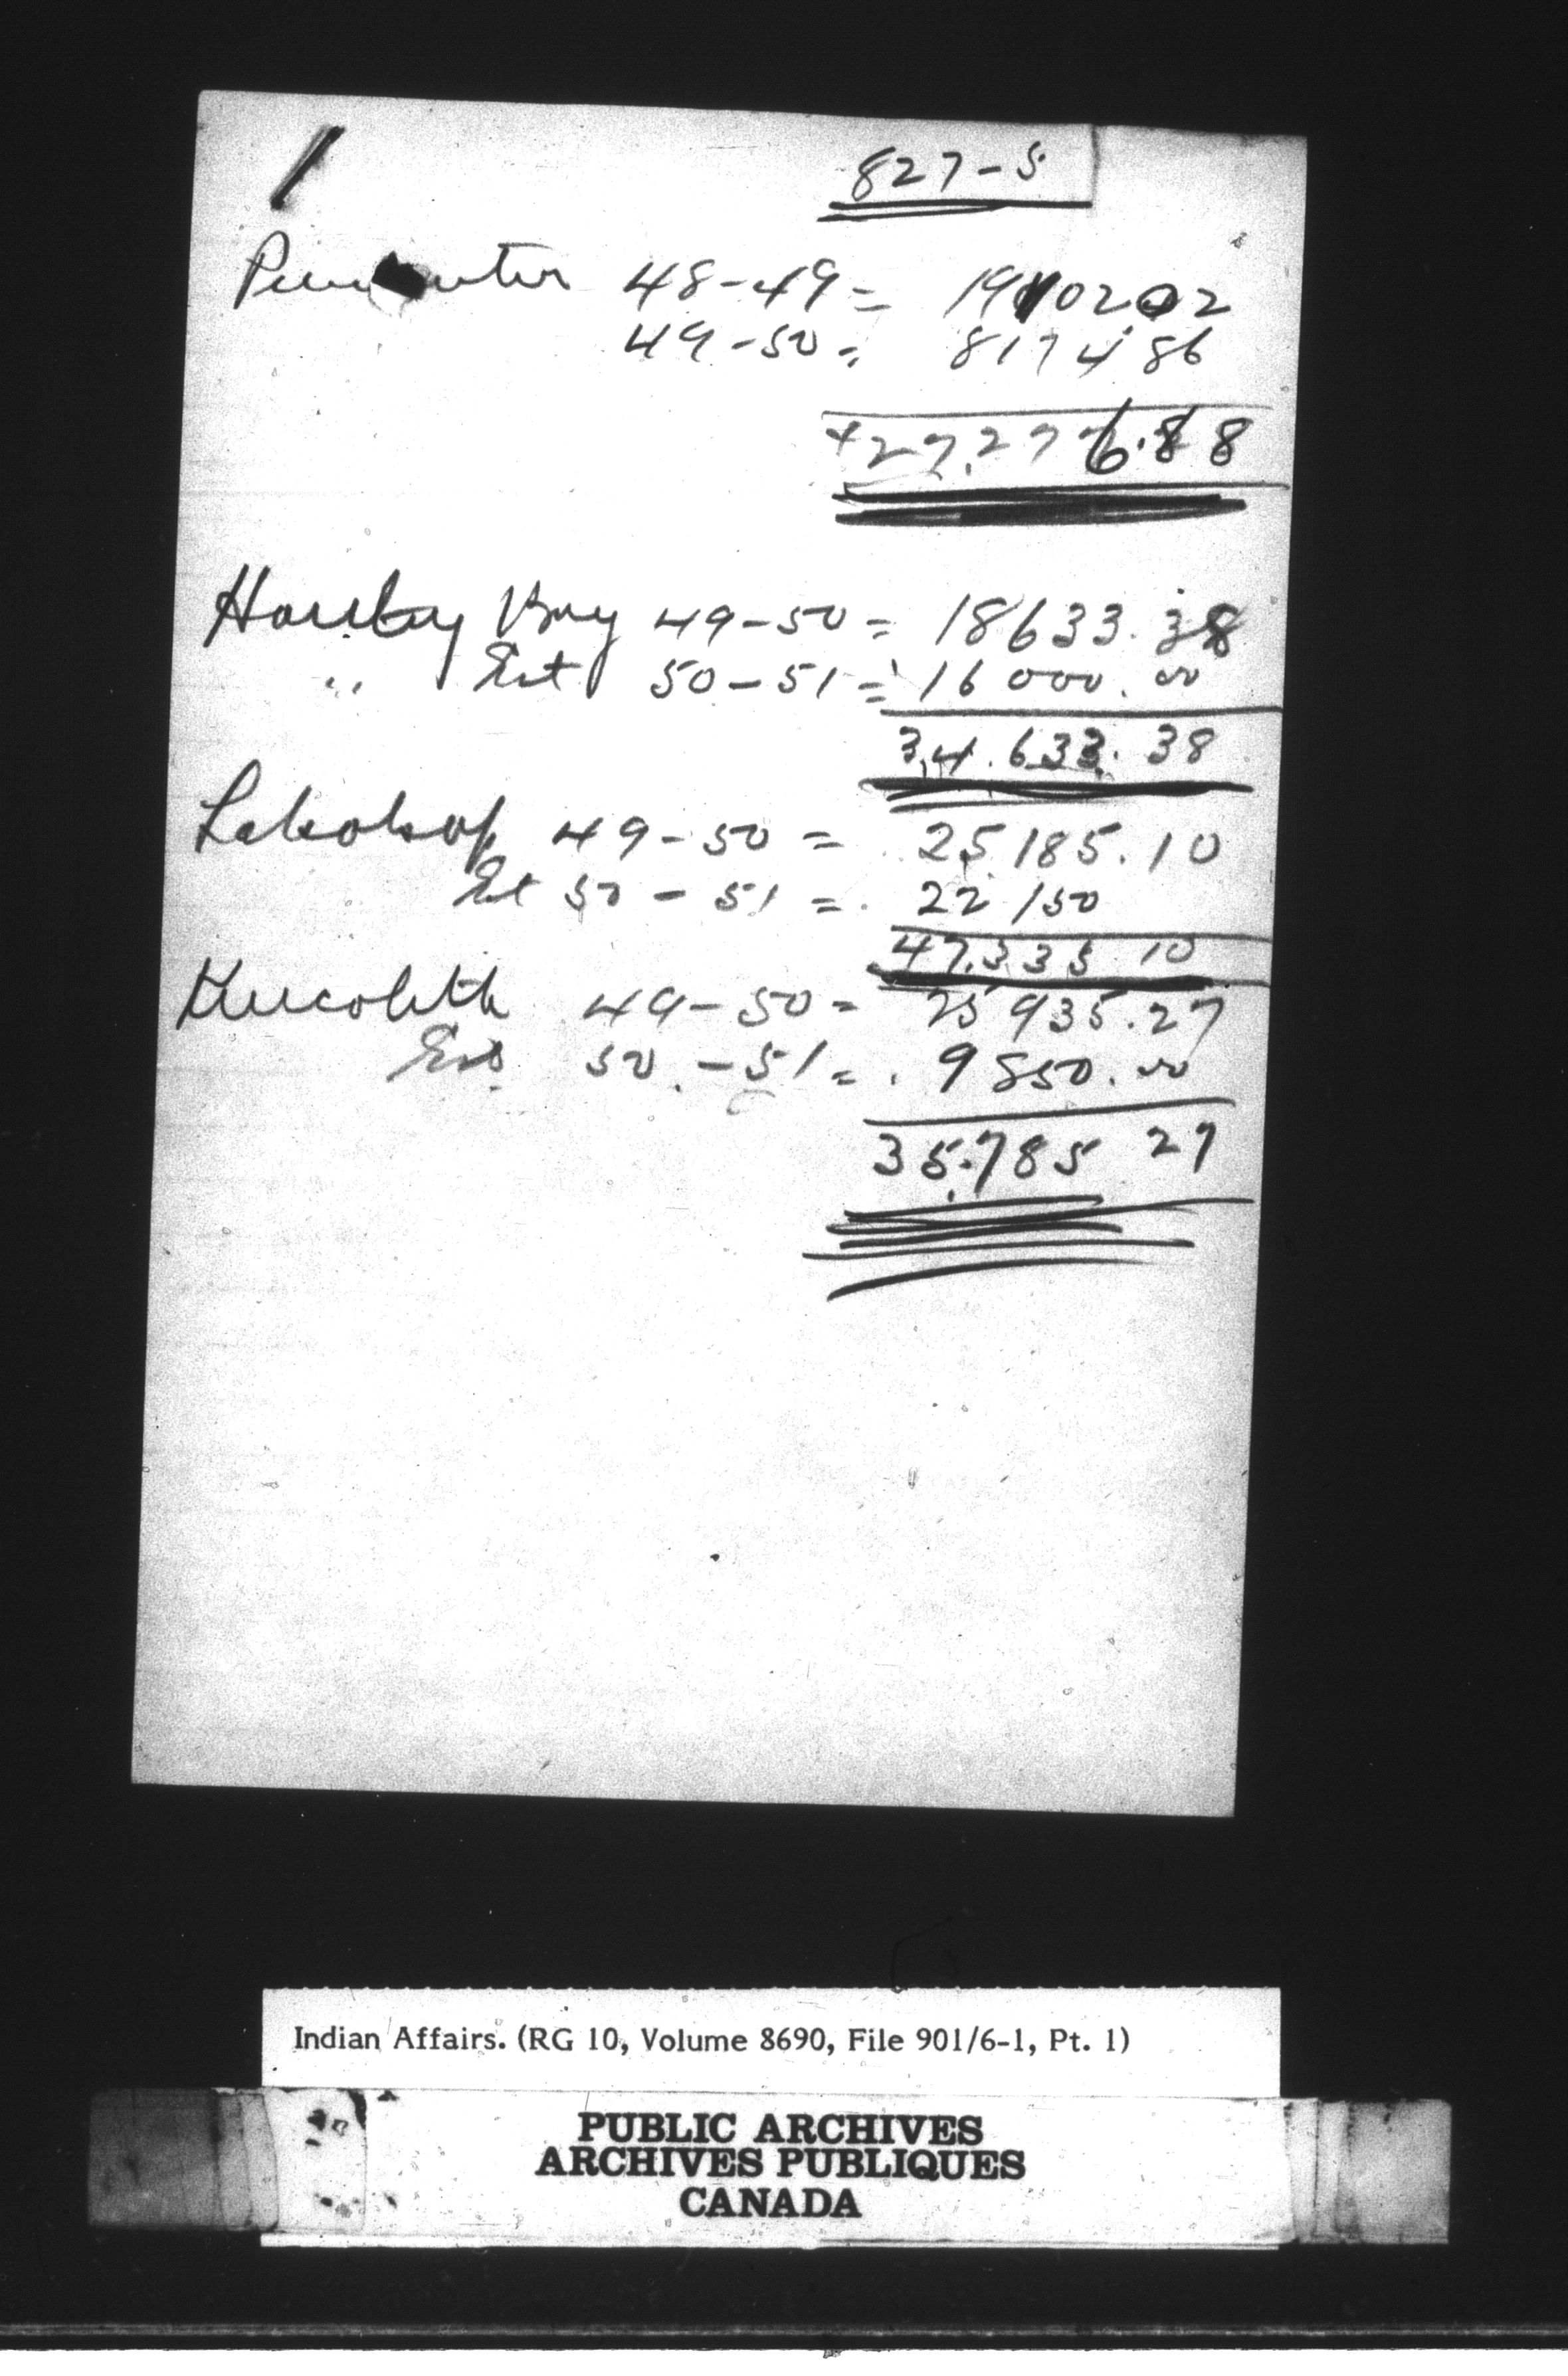 1
827-5
48-49 = 19102 02
49-50 = 8174 86
27,276.88
Bay 49-50 = 18633.38
" Est 50-51 = 16000.00
34.633.38
49-50 = 25,185.10
Est 50-51 = 22150
47,335 10
49-50 = 25935.27
Est 50-51 = 9850.00
35,785 27
Indian Affairs. (RG 10, Volume 8690, File 901/6-1, Pt. 1)
PUBLIC ARCHIVES
ARCHIVES PUBLIQUES
CANADA